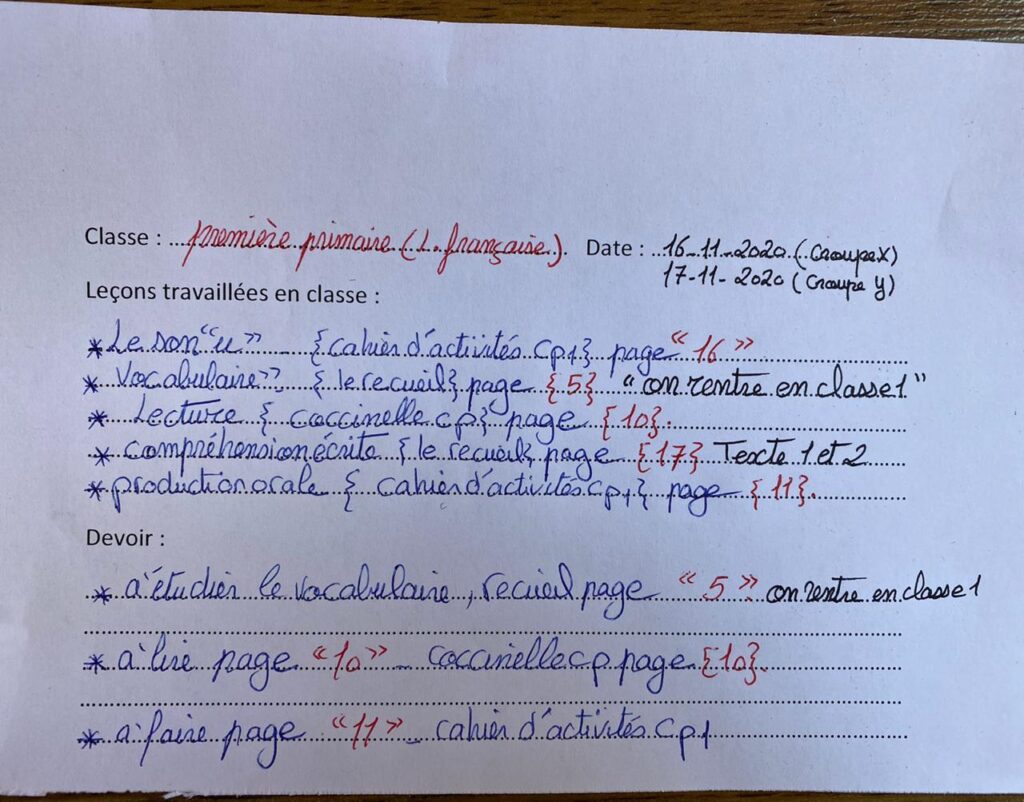 Classe : première primaire (L. française). Date : 16-11-2020 (Groupe X)
17-11-2020 (Groupe y)
Leçons travaillées en classe :
* Le son "u" {cahier d'activités Cp1} page "16"
* Vocabulaire" {le recueil} page {5} "on rentre en classe 1"
* Lecture { coccinelle cp} page {10}.
* compréhension écrite {le recueil} page {17} Texte 1 et 2
* production orale { cahier d'activités Cp1} page {11}.
Devoir :
* à étudier le vocabulaire, recueil page "5" on rentre en classe 1
* à lire page "10" - coccinelle cp page {10}.
* à faire page "11" - cahier d'activités Cp1